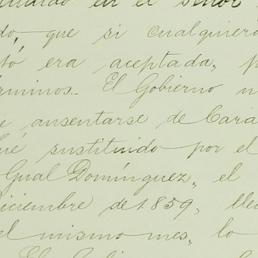 en el señor
do, que si cualquiera
tó era aceptada, p
érminos. El Gobierno n
e ausentarse de Cara
ué sustituido por el
Gual Domínguez, el
iciembre de 1859, lle
el mismo mes, lo